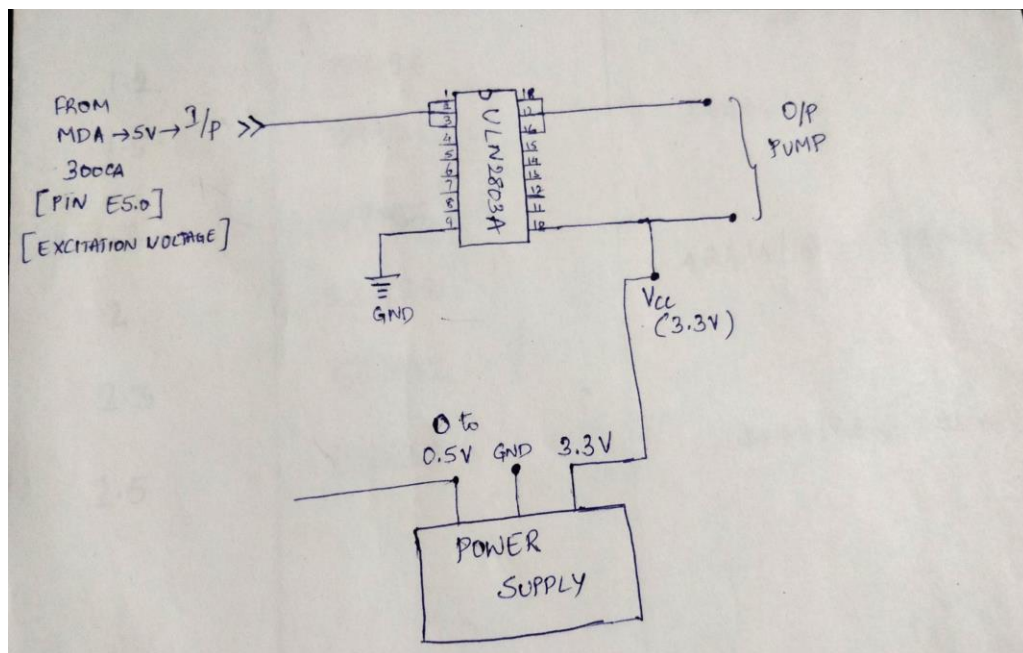 FROM
MDA → 5V → I/P
300CA
[PIN E5.0]
[EXCITATION VOLTAGE]
1
2
3
4
5
6
7
8
9
ULN2803A
18
17
16
15
14
13
12
11
10
O/P
PUMP
GND
Vcc
(3.3V)
0 to
0.5V GND 3.3V
POWER
SUPPLY